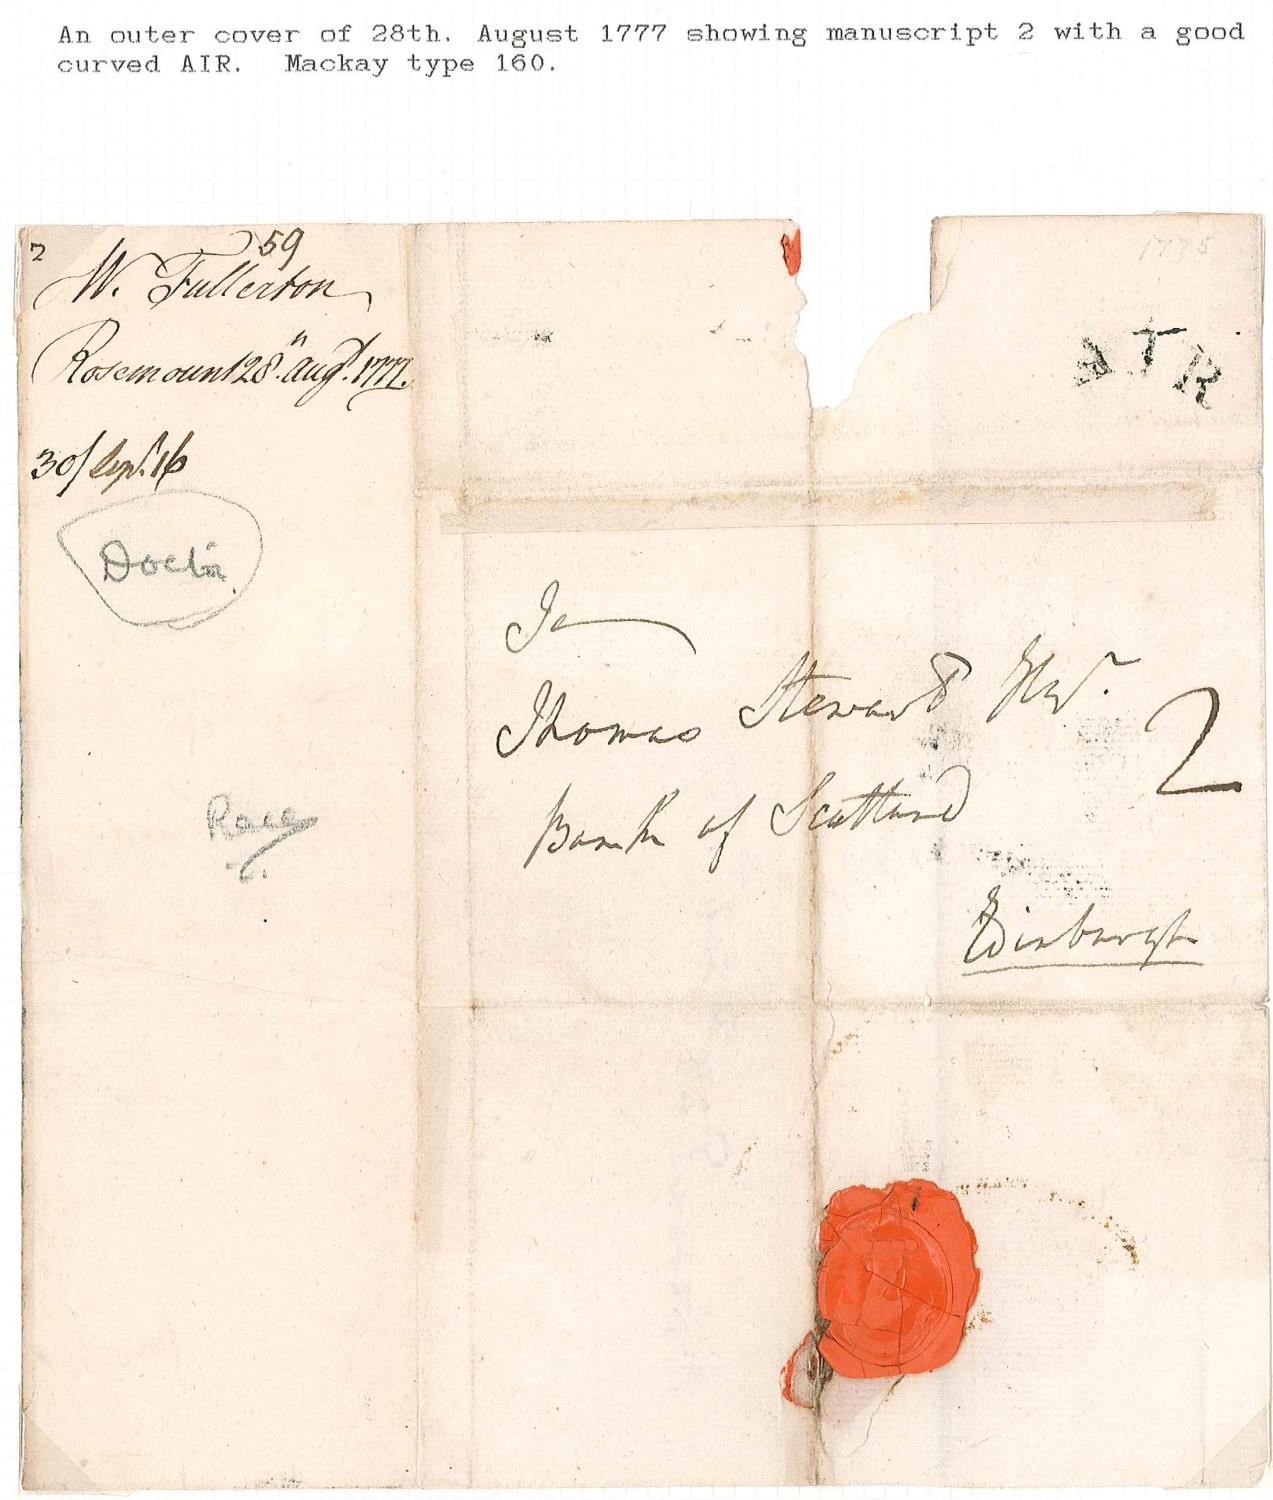 An outer cover of 28th. August 1777 showing manuscript 2 with a good
curved AIR. Mackay type 160.
2
59
W. Fullerton
Rosemount 28" Augt. 1777.
30/ Sepr. 16
1775
AIR
To
Thomas Stewart Esqr.
2
Bank of Scotland
Edinburgh